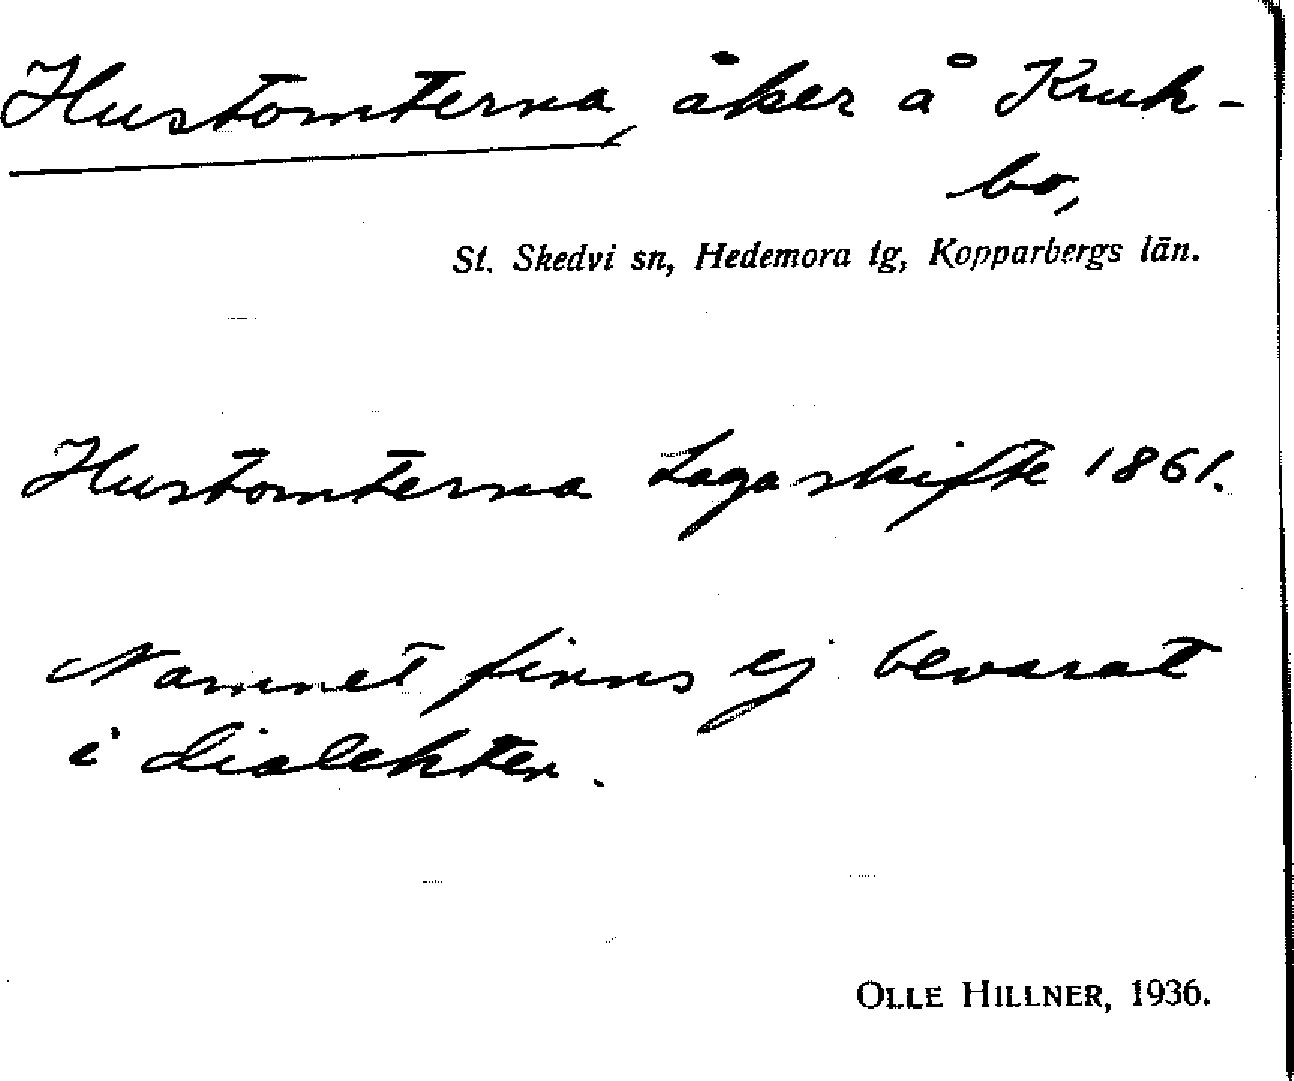 Hustomterna, åker å Kruk-
bo,
St. Skedvi sn, Hedemora tg, Kopparbergs län.
Hustomterna Lagaskifte 1861.
Namnet finns ej bevarat
i dialekten.
OLLE HILLNER, 1936.